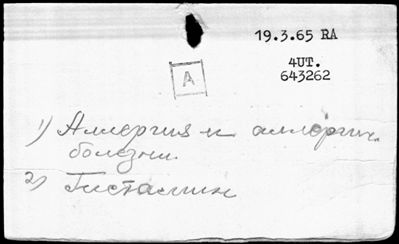 19.3.65 RA
4UT.
643262
A
1) Аллергия и аллергич.
болезни.
2) Гистамин